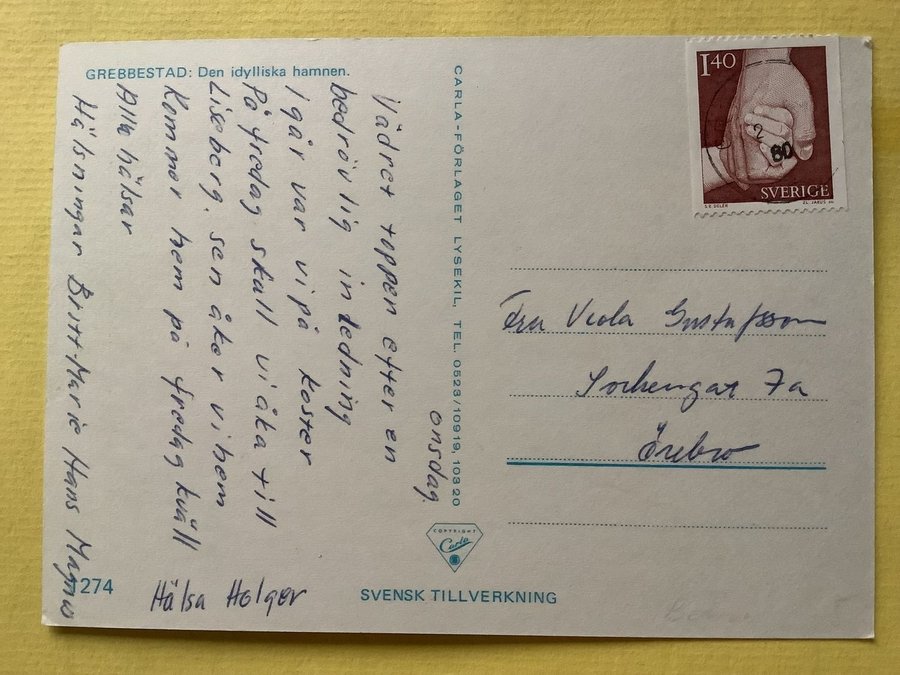 GREBBESTAD: Den idylliska hamnen.
onsdag
Vädret toppen efter en
bedrövlig inledning
I går var vi på Koster
På fredag skall vi åka till
Liseberg. sen åker vi hem
Kommer hem på fredag kväll
Alla hälsar
Hälsningar Britt-Marie Hans Magnus
Hälsa Holger
1274
CARLA-FÖRLAGET LYSEKIL, TEL. 0523/10919, 10320
COPYRIGHT
Carla
SVENSK TILLVERKNING
1.40
2
80
SVERIGE
Fru Viola Gustafsson
7a
Örebro